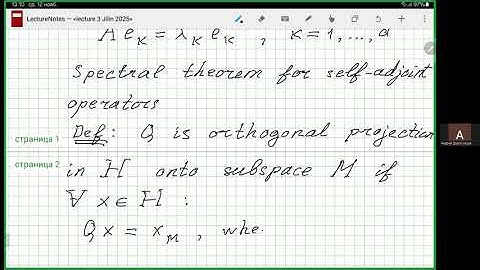 13:10 ср, 12 нояб.
LectureNotes — «lecture 3 Jilin 2025»
A e_k = λ_k e_k , k = 1, ..., d
Spectral theorem for self-adjoint
operators
Def: Q is orthogonal projection
страница 1
in H onto subspace M if
страница 2
∀ x ∈ H :
Q x = x_M , whe
A